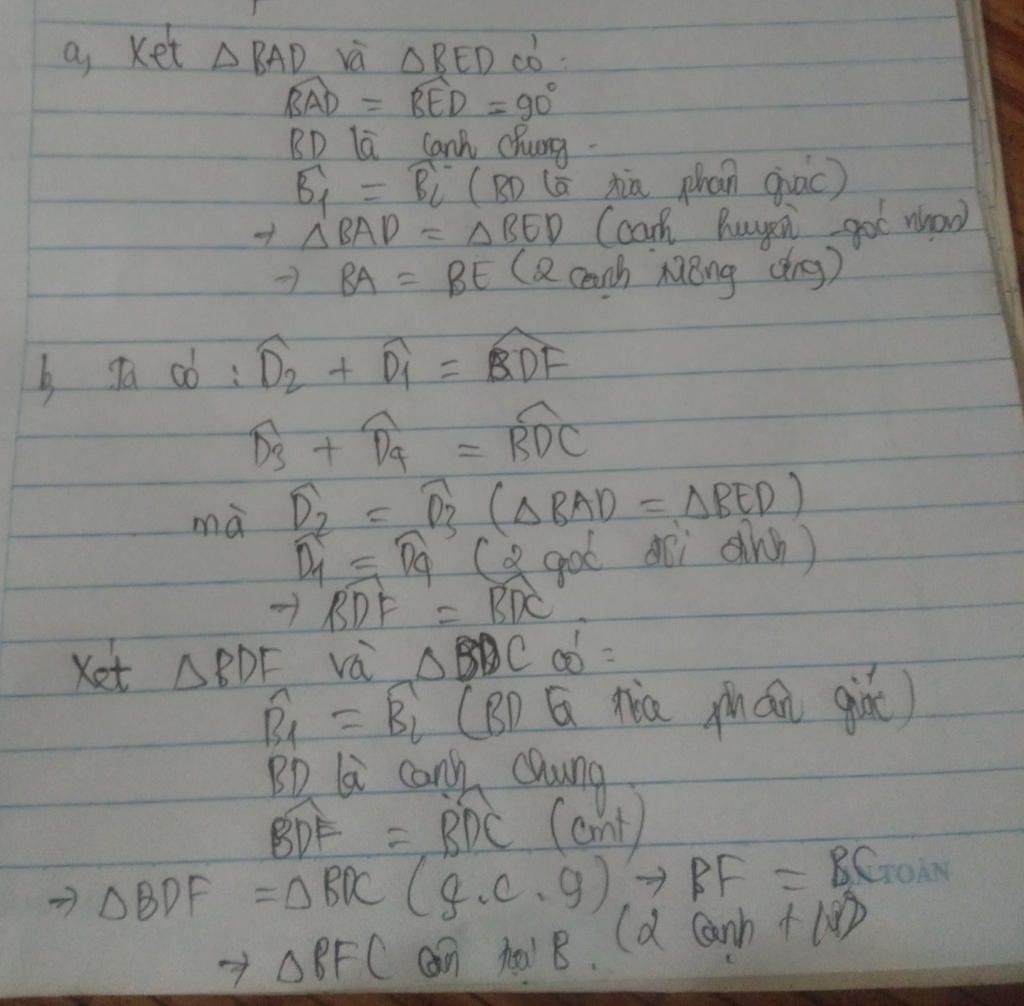 a, Xét △BAD và △BED có:
BAD̂ = BED̂ = 90°
BD là cạnh chung.
B̂₁ = B̂₂ (BD là tia phân giác)
→ △BAD = △BED (cạnh huyền - góc nhọn)
→ BA = BE (2 cạnh tương ứng)
b, Ta có: D̂₂ + D̂₁ = BDF̂
D̂₃ + D̂₄ = BDĈ
mà D̂₂ = D̂₃ (△BAD = △BED)
D̂₁ = D̂₄ (2 góc đối đỉnh)
→ BDF̂ = BDĈ.
Xét △BDF và △BDC có:
B̂₁ = B̂₂ (BD là tia phân giác)
BD là cạnh chung
BDF̂ = BDĈ (cmt)
→ △BDF = △BDC (g.c.g) → BF = BC
(2 cạnh t/ư)
→ △BFC cân tại B.
TOÁN